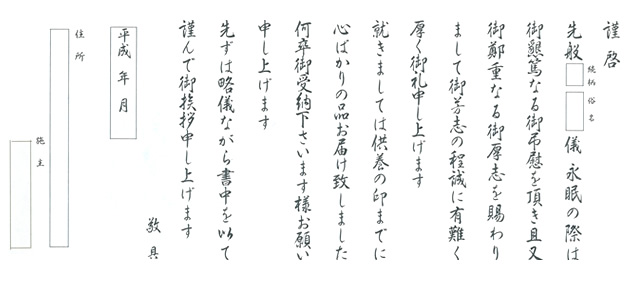 謹啓
先般 続柄 俗名 儀 永眠の際は
御懇篤なる御弔慰を頂き且又
御鄭重なる御厚志を賜わり
まして御芳志の程誠に有難く
厚く御礼申し上げます
就きましては供養の印までに
心ばかりの品お届け致しました
何卒御受納下さいます様お願い
申し上げます
先ずは略儀ながら書中を以て
謹んで御挨拶申し上げます
敬具
平成 年 月
住所
施主